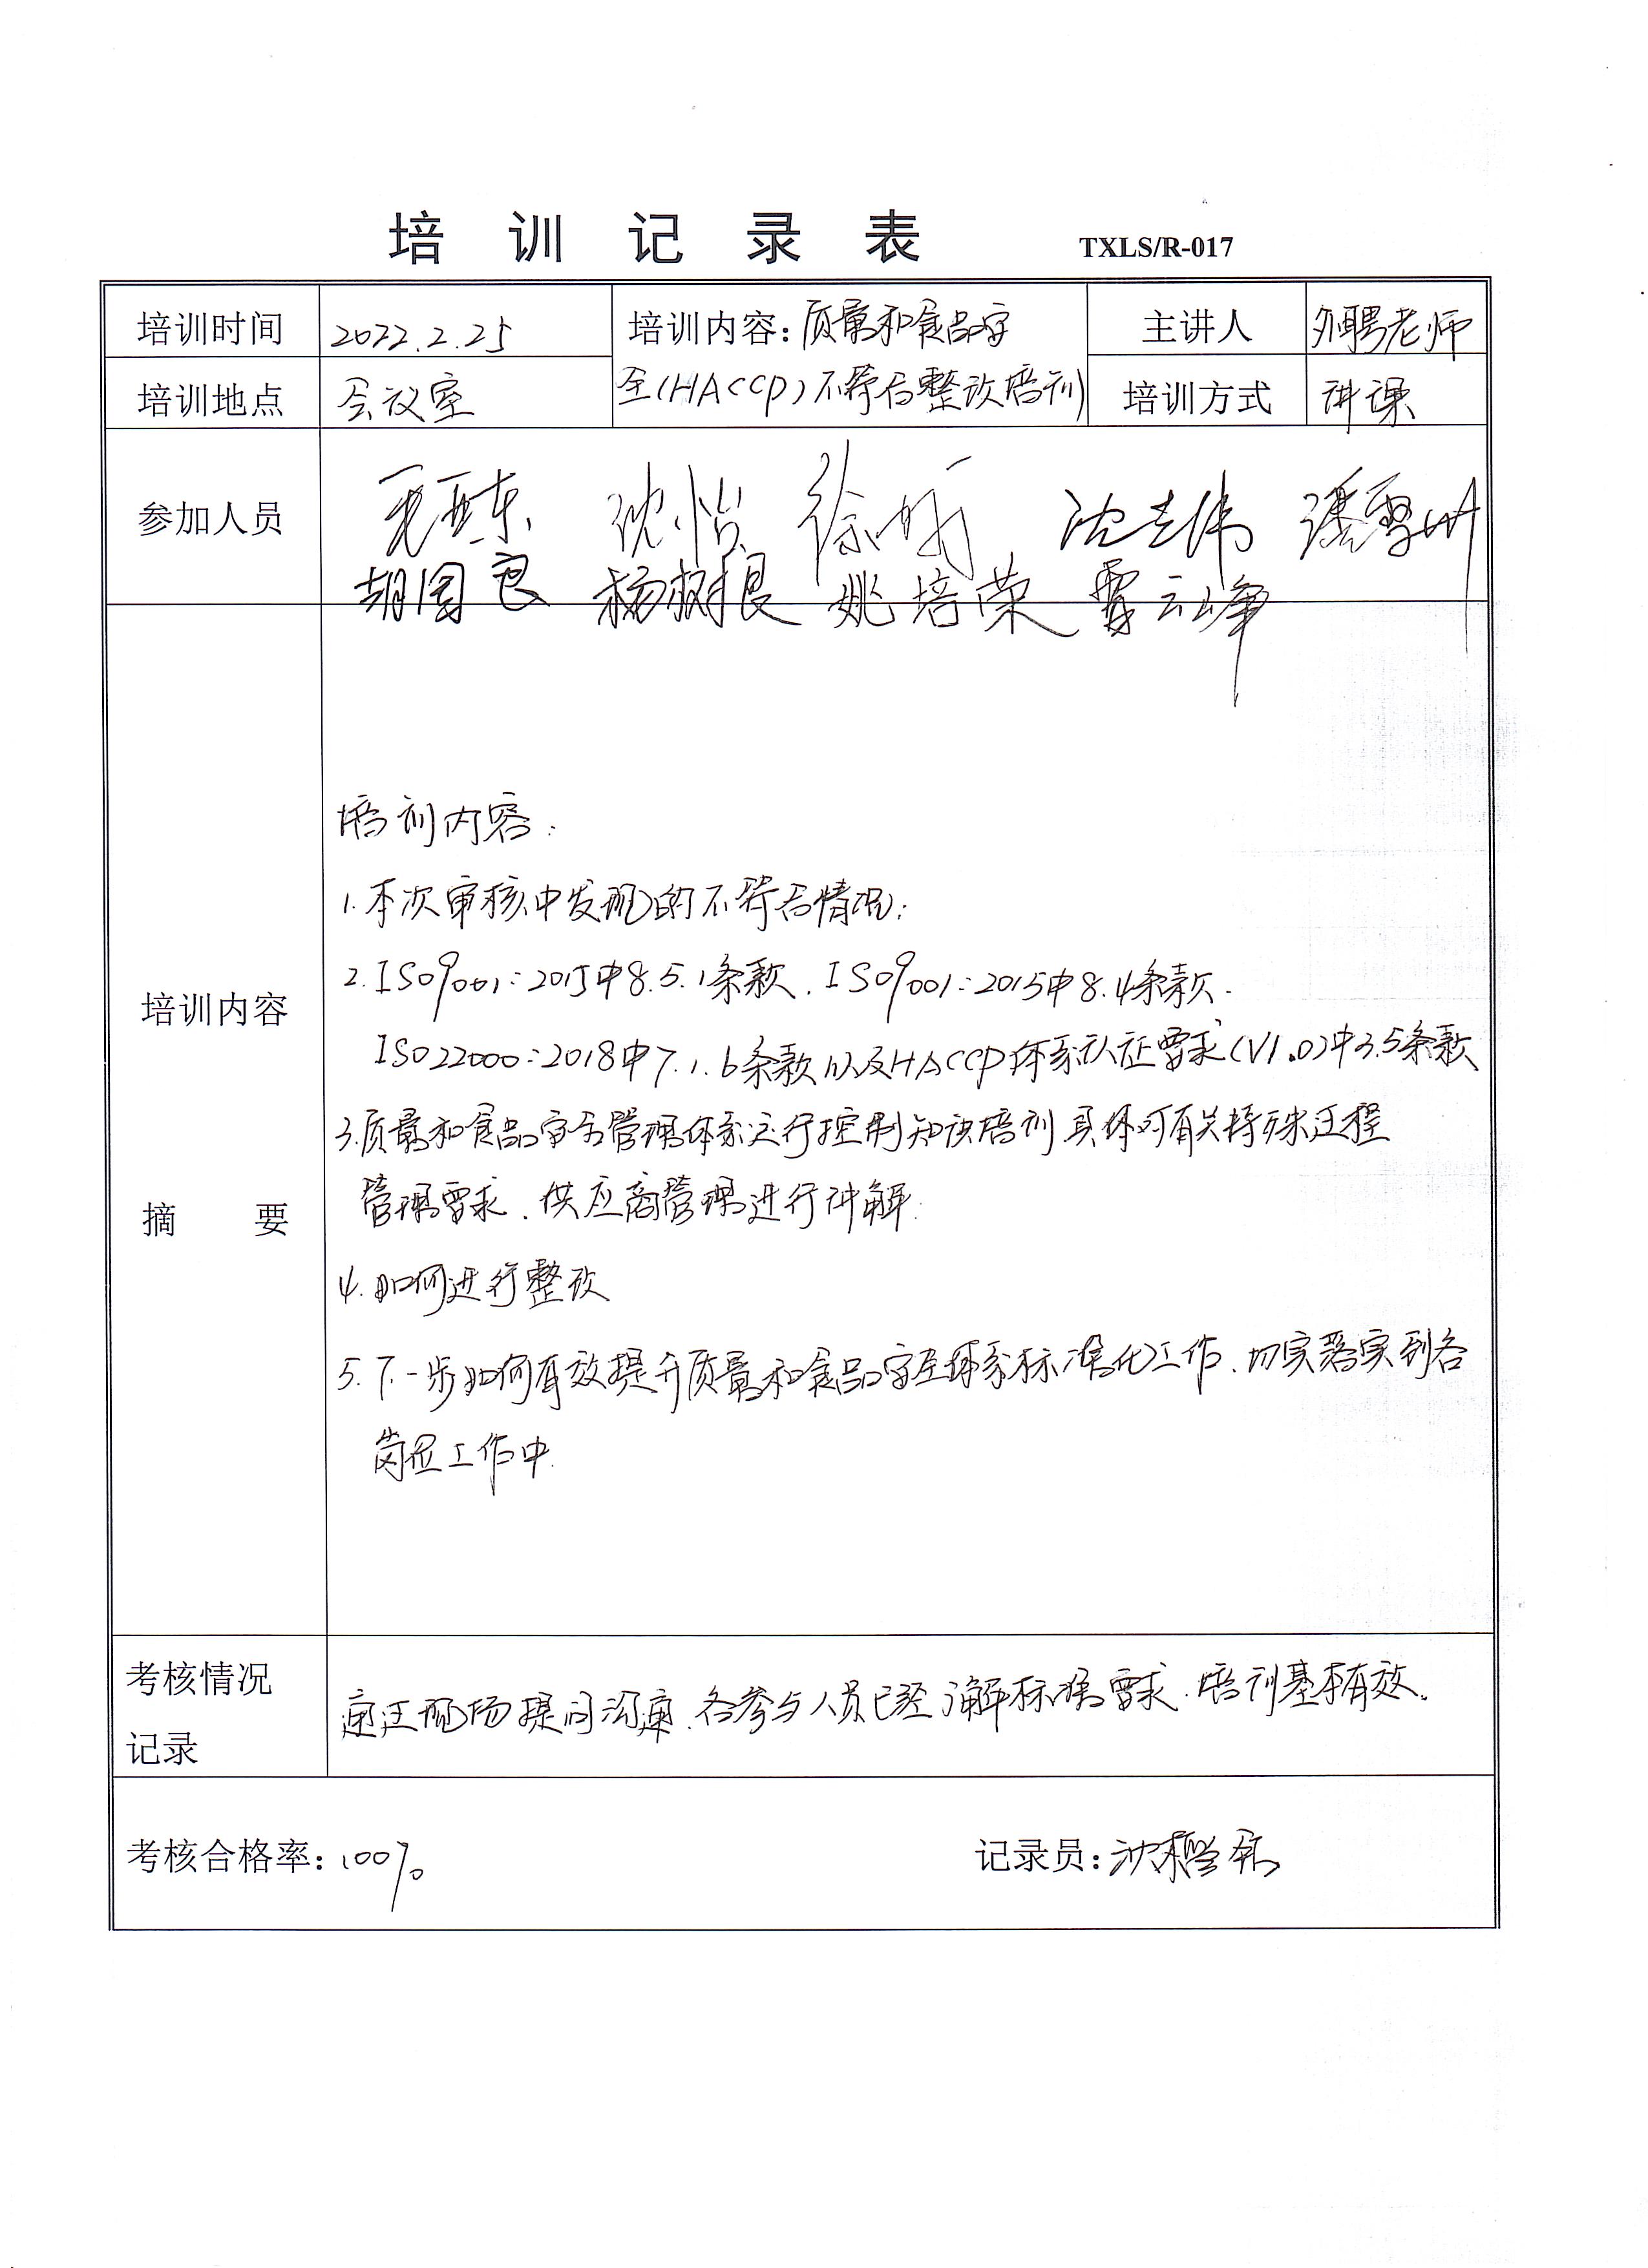 培训记录表 TXLS/R-017
培训时间 2022.2.25 培训内容：质量和食品安 主讲人 外聘老师
培训地点 会议室 全(HACCP)不符合整改培训 培训方式 讲课
参加人员 沈怡
胡国良 杨树根 姚培荣 云峰
培训内容：
1.本次审核中发现的不符合情况；
2.ISO9001：2015中8.5.1条款、ISO9001：2015中8.4条款、
ISO22000：2018中7.1.6条款以及HACCP体系认证要求(V1.0)中3.5条款
培训内容
3.质量和食品安全管理体系运行控制知识培训,具体对有关特殊过程
管理要求、供应商管理进行讲解.
摘 要
4.如何进行整改
5.下一步如何有效提升质量和食品安全体系标准化工作、切实落实到各
岗位工作中.
考核情况
记录
通过现场提问沟通、各参与人员已经了解标准要求、培训基本有效。
考核合格率：100% 记录员：沈